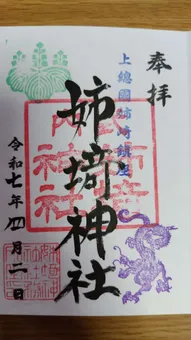 奉拝
上總國姉埼鎮座
姉埼神社
令和七年四月二日